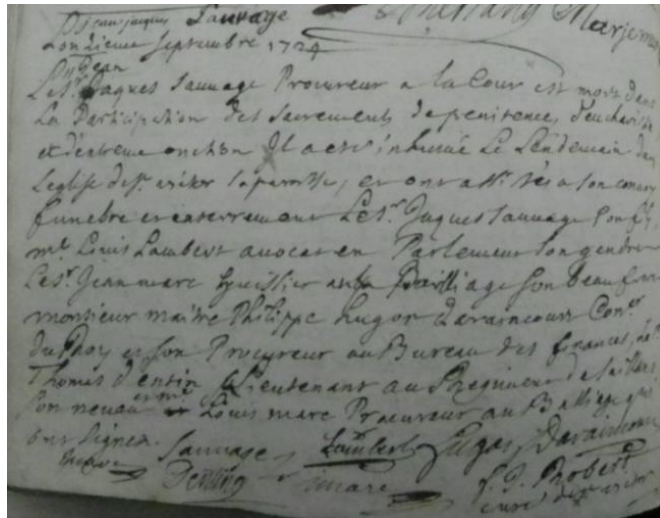 Jean jacques Sauvage
L'onzieme Septembre 1724
Jean
Le Sr. Jaques Sauvage Procureur a la Cour est mort dans
La Participation des sacrements de penitence, d'eucharistie
et d'extreme onction Il a esté inhumé Le Lendemain dans
L'eglise de St. victor sa paroisse, et ont assistés a son convoy
funebre et enterrement Le Sr. Jaques Sauvage son fils,
me. Louis Lambert avocat en Parlement son gendre
Le Sr. Jean marc huissier au Bailliage son beau frere
monsieur maitre Philippe hugor Conser
du Roy et son Procureur au Bureau des finances,
Thomas Lieutenant au Regiment de
son neveu et me. Louis marc Procureur au Balliage qui
ont signez. Sauvage Lambert
marc
J. Robert
curé de St victor